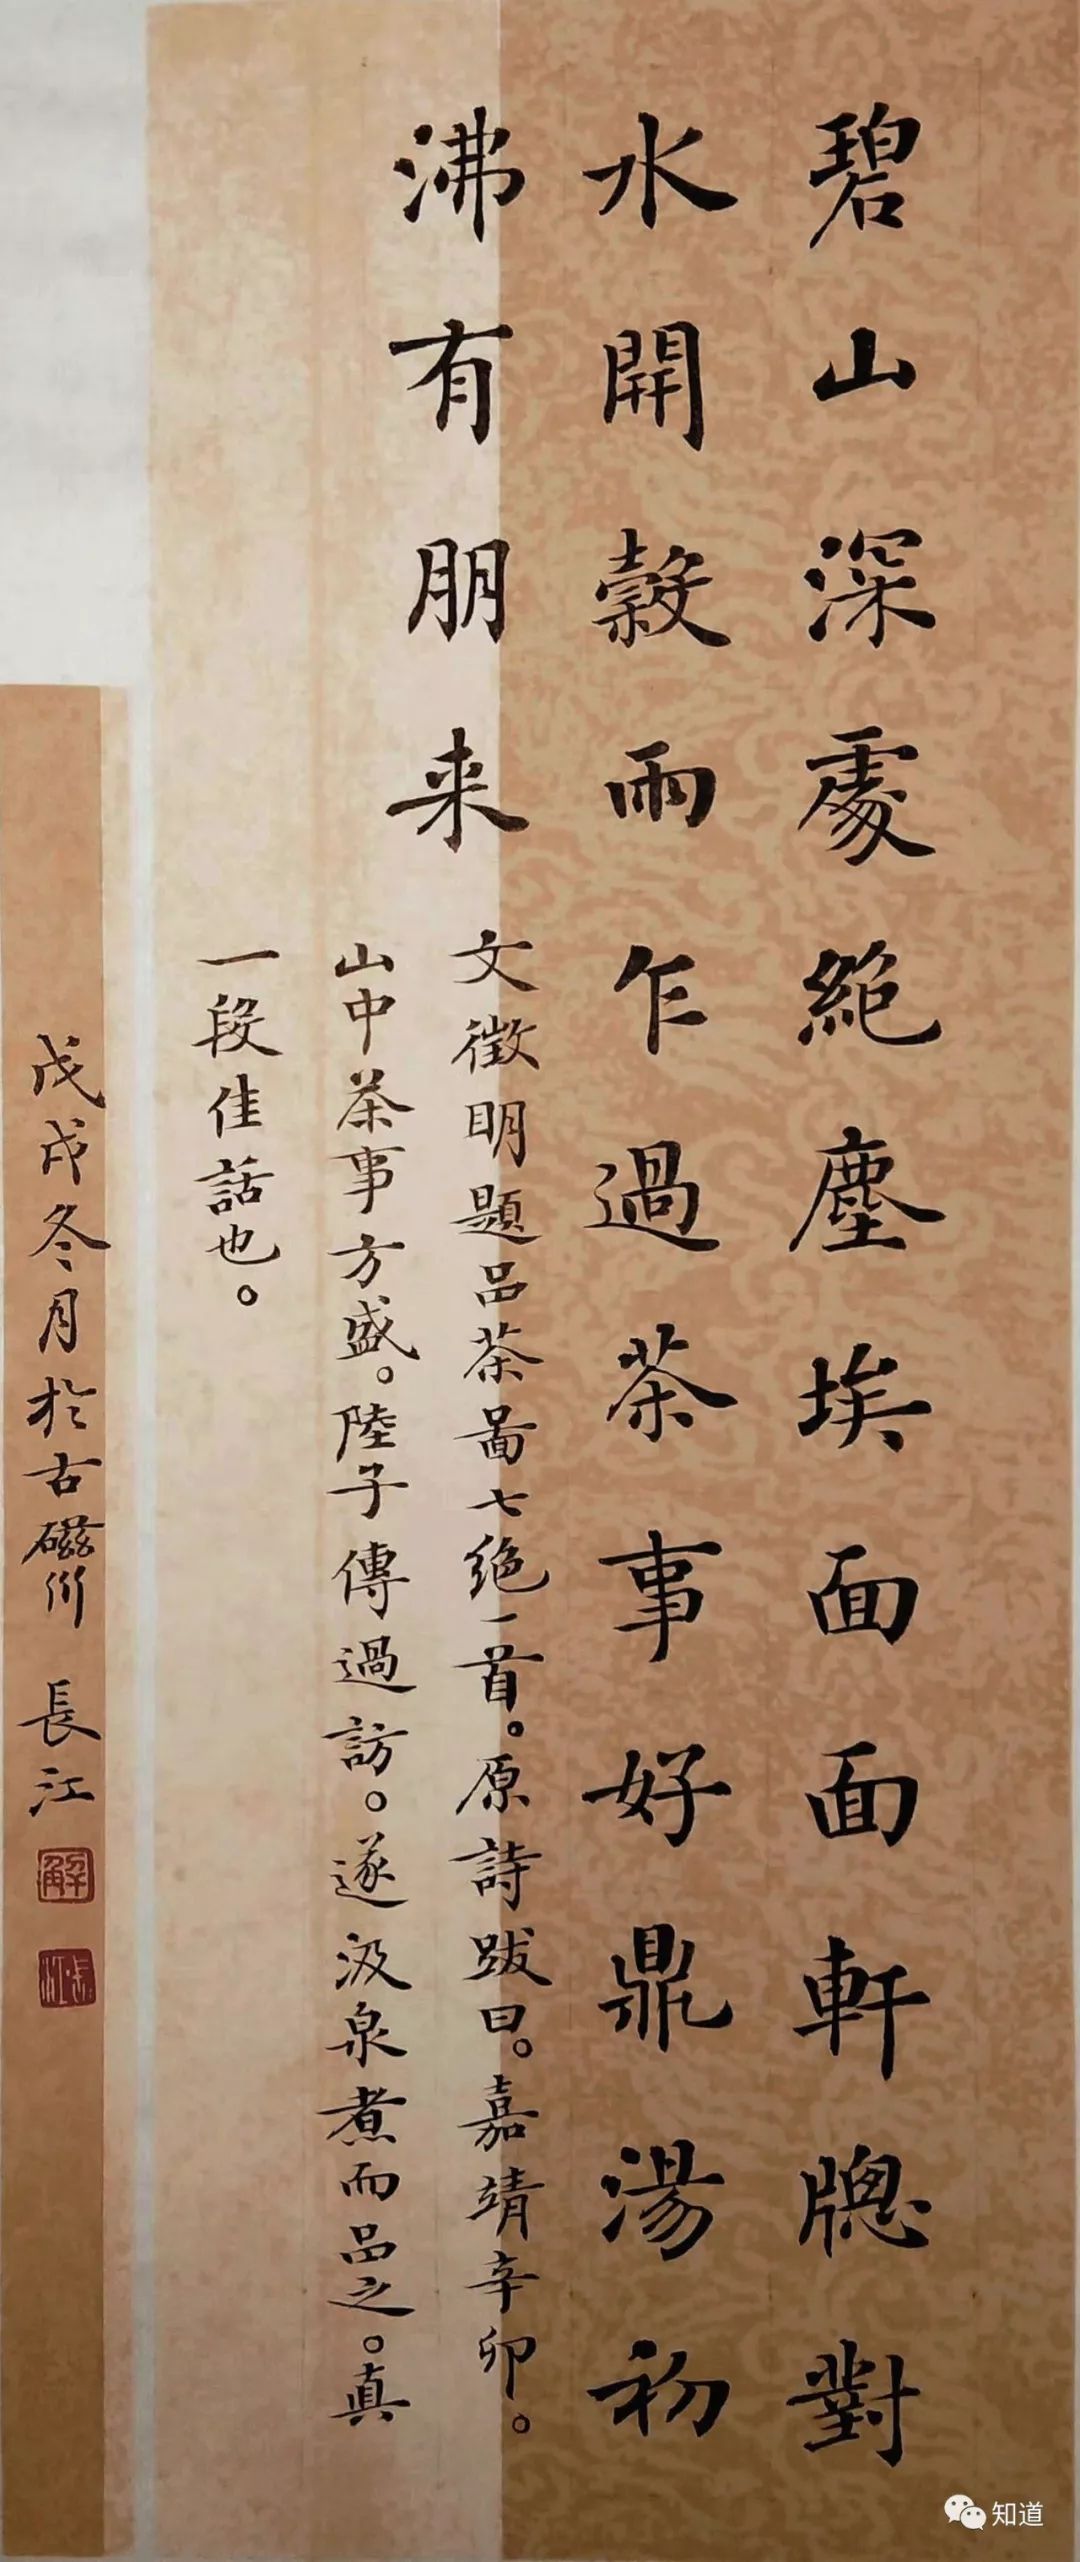 碧山深處絕塵埃面面軒牕對
水開穀雨乍過茶事好鼎湯初
沸有朋来
文徵明題品茶啚七绝一首。原詩跋曰。嘉靖辛卯。
山中茶事方盛。陸子傳過訪。遂汲泉煮而品之。真
一段佳話也。
戊戌冬月於古磁州 長江
解
長江
知道